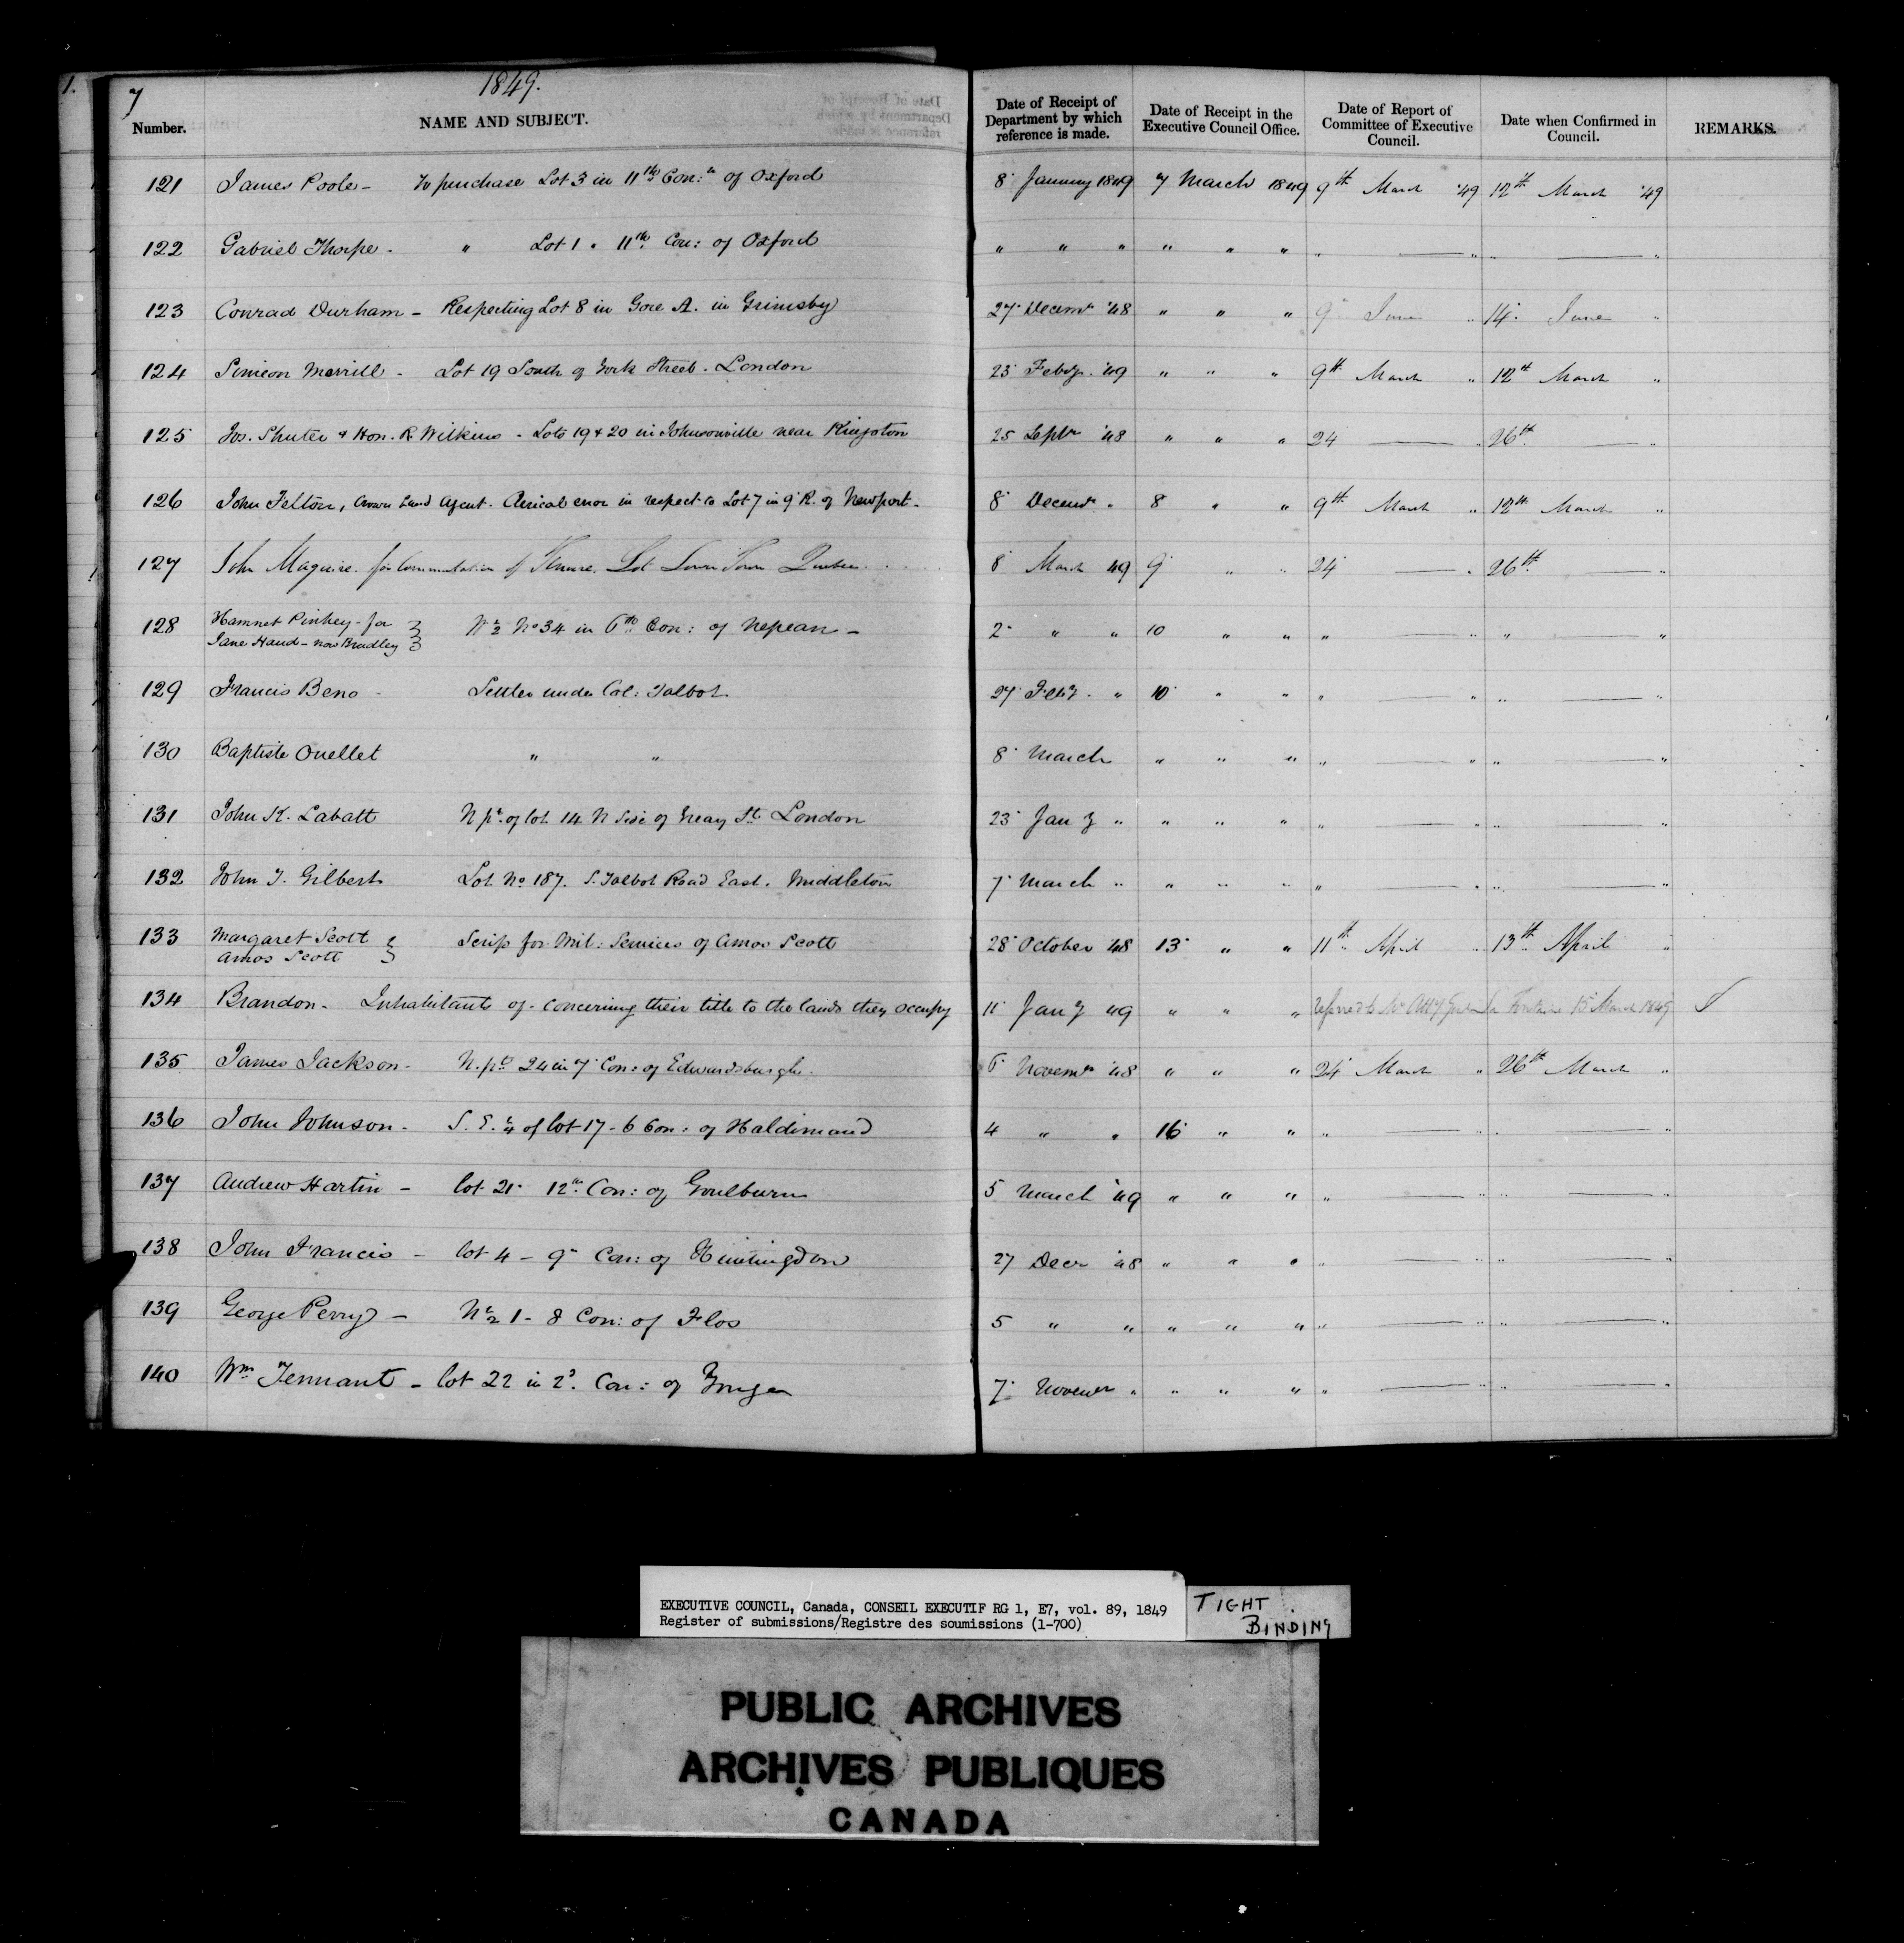 7
1849.
Number. NAME AND SUBJECT. Date of Receipt of Department by which reference is made. Date of Receipt in the Executive Council Office. Date of Report of Committee of Executive Council. Date when Confirmed in Council. REMARKS.
121 James Poole - To purchase Lot 3 in 11th Con:n of Oxford 8 January 1849 7 March 1849 9th March '49 12th March '49
122 Gabriel Thorpe - " Lot 1 " 11th Con: of Oxford " " " " " " " — " " — "
123 Conrad Durham - Respecting Lot 8 in Gore A. in Grimsby 27 Decemr '48 " " " 9 June " 14 June "
124 Simeon Merrill - Lot 19 South of York Street - London 23 Feby. '49 " " " 9th March " 12th March "
125 Jos. Shuter & Hon. R. Wilkins - Lots 19 & 20 in Johnsonville near Kingston 25 Septr '48 " " " 24 — " 26th — "
126 John Felton, Crown Land Agent. Clerical error in respect to Lot 7 in 9 R. of Newport - 8 Decemr " 8 " " 9th March " 12th March "
127 John Maguire. for Commutation of Tenure. Lot Lower Town Quebec. 8 March 49 9 " " 24 — " 26th — "
128 Hamnet Pinhey - for
Jane Hand - now Bradley } W ½ No 34 in 6th Con: of Nepean - 2 " " 10 " " " — " " — "
129 Francis Beno - Settler under Col: Talbot 27 Feby. " 10 " " " — " " — "
130 Baptiste Ouellet " " 8 March " " " " — " " — "
131 John K. Labatt N pt. of lot 14 N side of Grey St. London 23 Jany " " " " " — " " — "
132 John T. Gilbert Lot No 187. S. Talbot Road East. Middleton 7 March " " " " " — " " — "
133 Margaret Scott
Amos Scott } Scrip for Mil: Services of Amos Scott 28 October '48 13 " " 11th April " 13th April "
134 Brandon - Inhabitants of - concerning their title to the lands they occupy 11 Jany '49 " " " referred to Mr Atty Genl La Fontaine 15 March 1849
135 James Jackson - N. pt. 24 in 7 Con: of Edwardsburgh. 6 Novemr '48 " " " 24 March " 26th March "
136 John Johnson - S. E. ¼ of lot 17 - 6 Con: of Haldimand 4 " " 16 " " " — " " — "
137 Andrew Hartin - lot 21 12th Con: of Goulburn 5 March '49 " " " " — " " — "
138 John Francis - lot 4 - 9 Con: of Huntingdon 27 Decr '48 " " " " — " " — "
139 George Perry - N ½ 1 - 8 Con: of Flos 5 " " " " " " — " " — "
140 Wm Tennant - lot 22 in 2d. Con: of Yonge 7 Novemr " " " " " — " " — "
EXECUTIVE COUNCIL, Canada, CONSEIL EXECUTIF RG 1, E7, vol. 89, 1849
Register of submissions/Registre des soumissions (1-700)
TIGHT
BINDING
PUBLIC ARCHIVES
ARCHIVES PUBLIQUES
CANADA